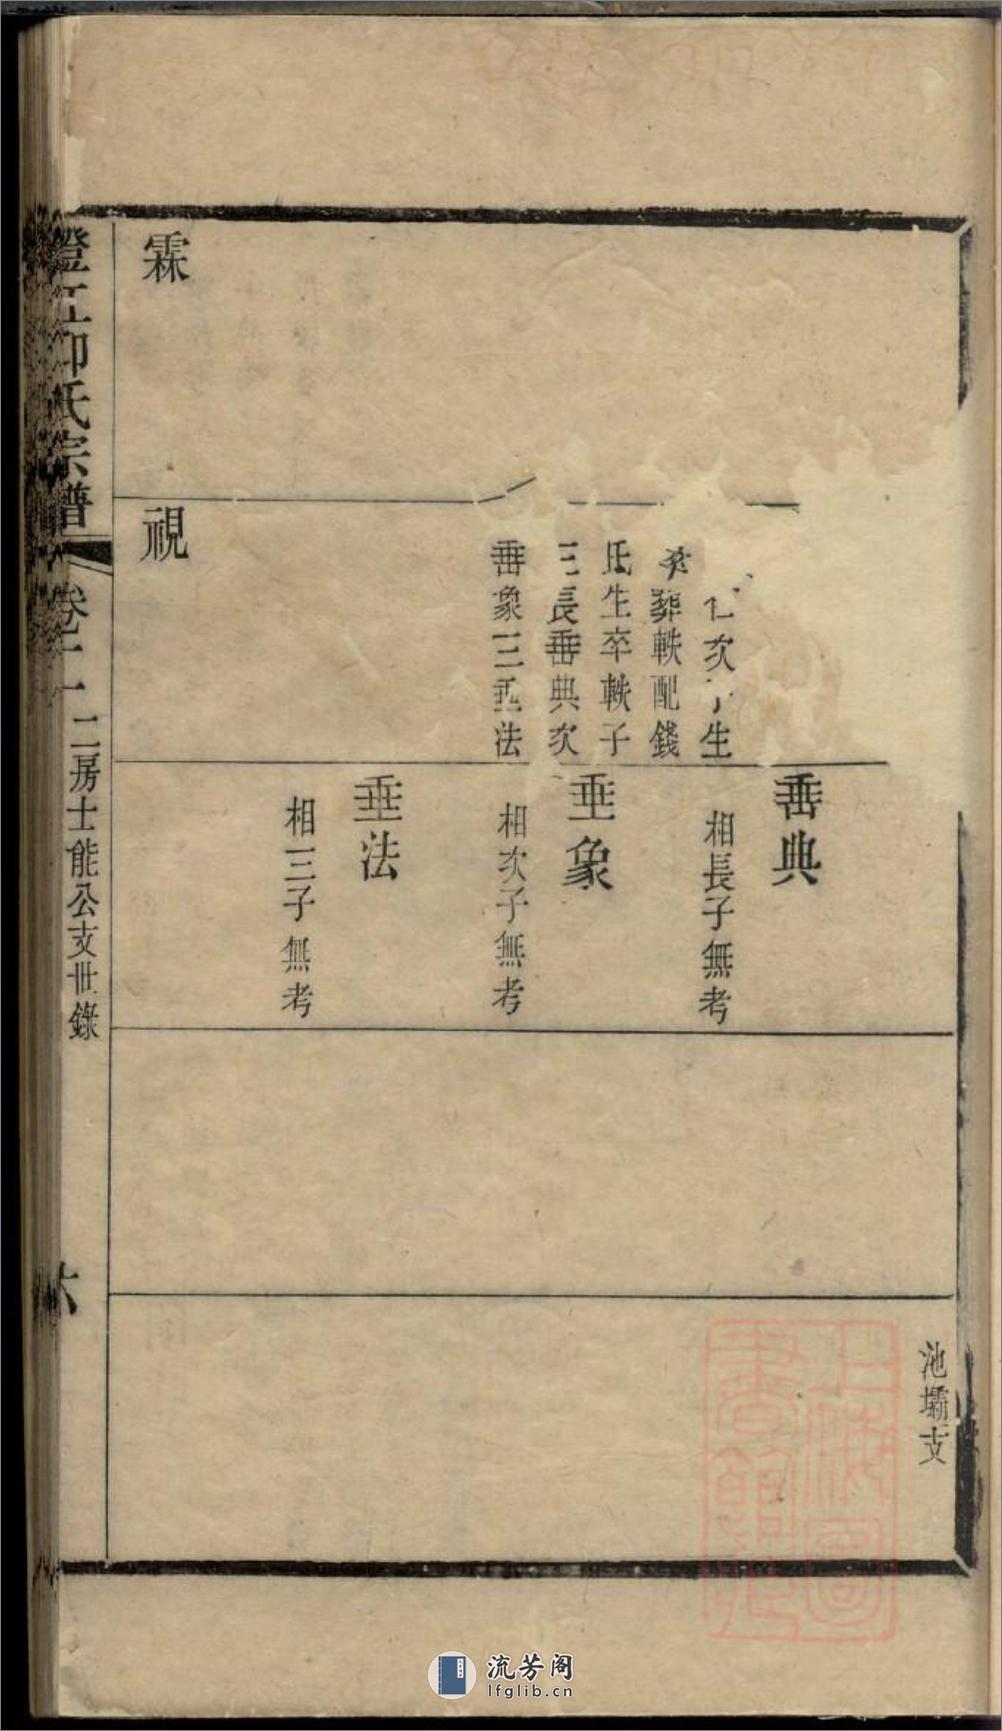 池壩支
次子生
葬軼配錢
氏生卒軼子
三長垂典次
垂象三垂法
垂典
相長子無考
垂象
相次子無考
垂法
相三子無考
霖
視
氏宗譜
卷二
二房士能公支世錄
六
上海圖書館藏
流芳阁
lfglib.cn